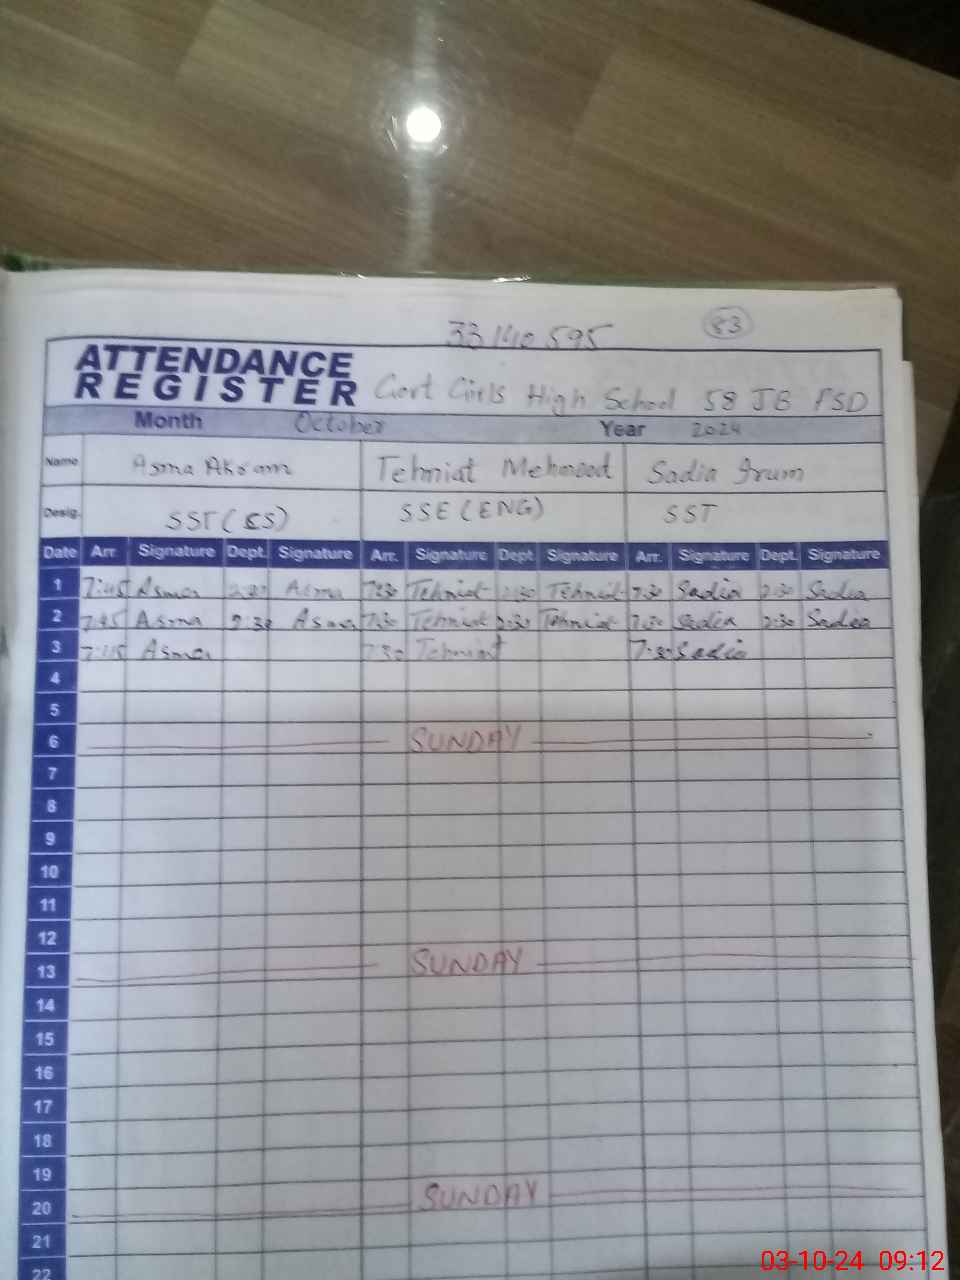 33140595
83
ATTENDANCE
REGISTER Govt Girls High School 58 JB FSD
Month October Year 2024
Name Asma Akram Tehniat Mehmood Sadia Irum
Desig. SST (CS) SSE (ENG) SST
Date Arr. Signature Dept. Signature Arr. Signature Dept. Signature Arr. Signature Dept. Signature
1 7:45 Asma 2:30 Asma 7:30 Tehniat 2:30 Tehniat 7:30 Sadia 2:30 Sadia
2 7:45 Asma 2:30 Asma 7:30 Tehniat 2:30 Tehniat 7:30 Sadia 2:30 Sadia
3 7:45 Asma 7:30 Tehniat 7:30 Sadia
4
5
6 SUNDAY
7
8
9
10
11
12
13 SUNDAY
14
15
16
17
18
19
20 SUNDAY
21
22
03-10-24 09:12